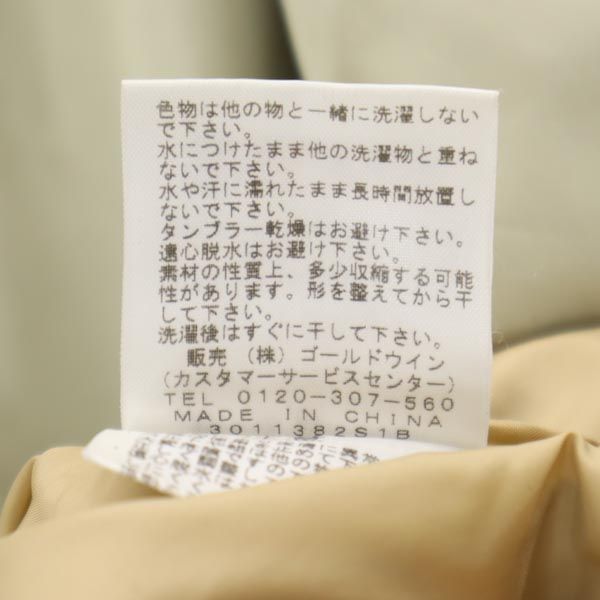 色物は他の物と一緒に洗濯しない
で下さい。
水につけたまま他の洗濯物と重ね
ないで下さい。
水や汗に濡れたまま長時間放置し
ないで下さい。
タンブラー乾燥はお避け下さい。
遠心脱水はお避け下さい。
素材の性質上、多少収縮する可能
性があります。形を整えてから干
して下さい。
洗濯後はすぐに干して下さい。
販売 (株) ゴールドウイン
(カスタマーサービスセンター)
TEL 0120-307-560
MADE IN CHINA
3011382S1B